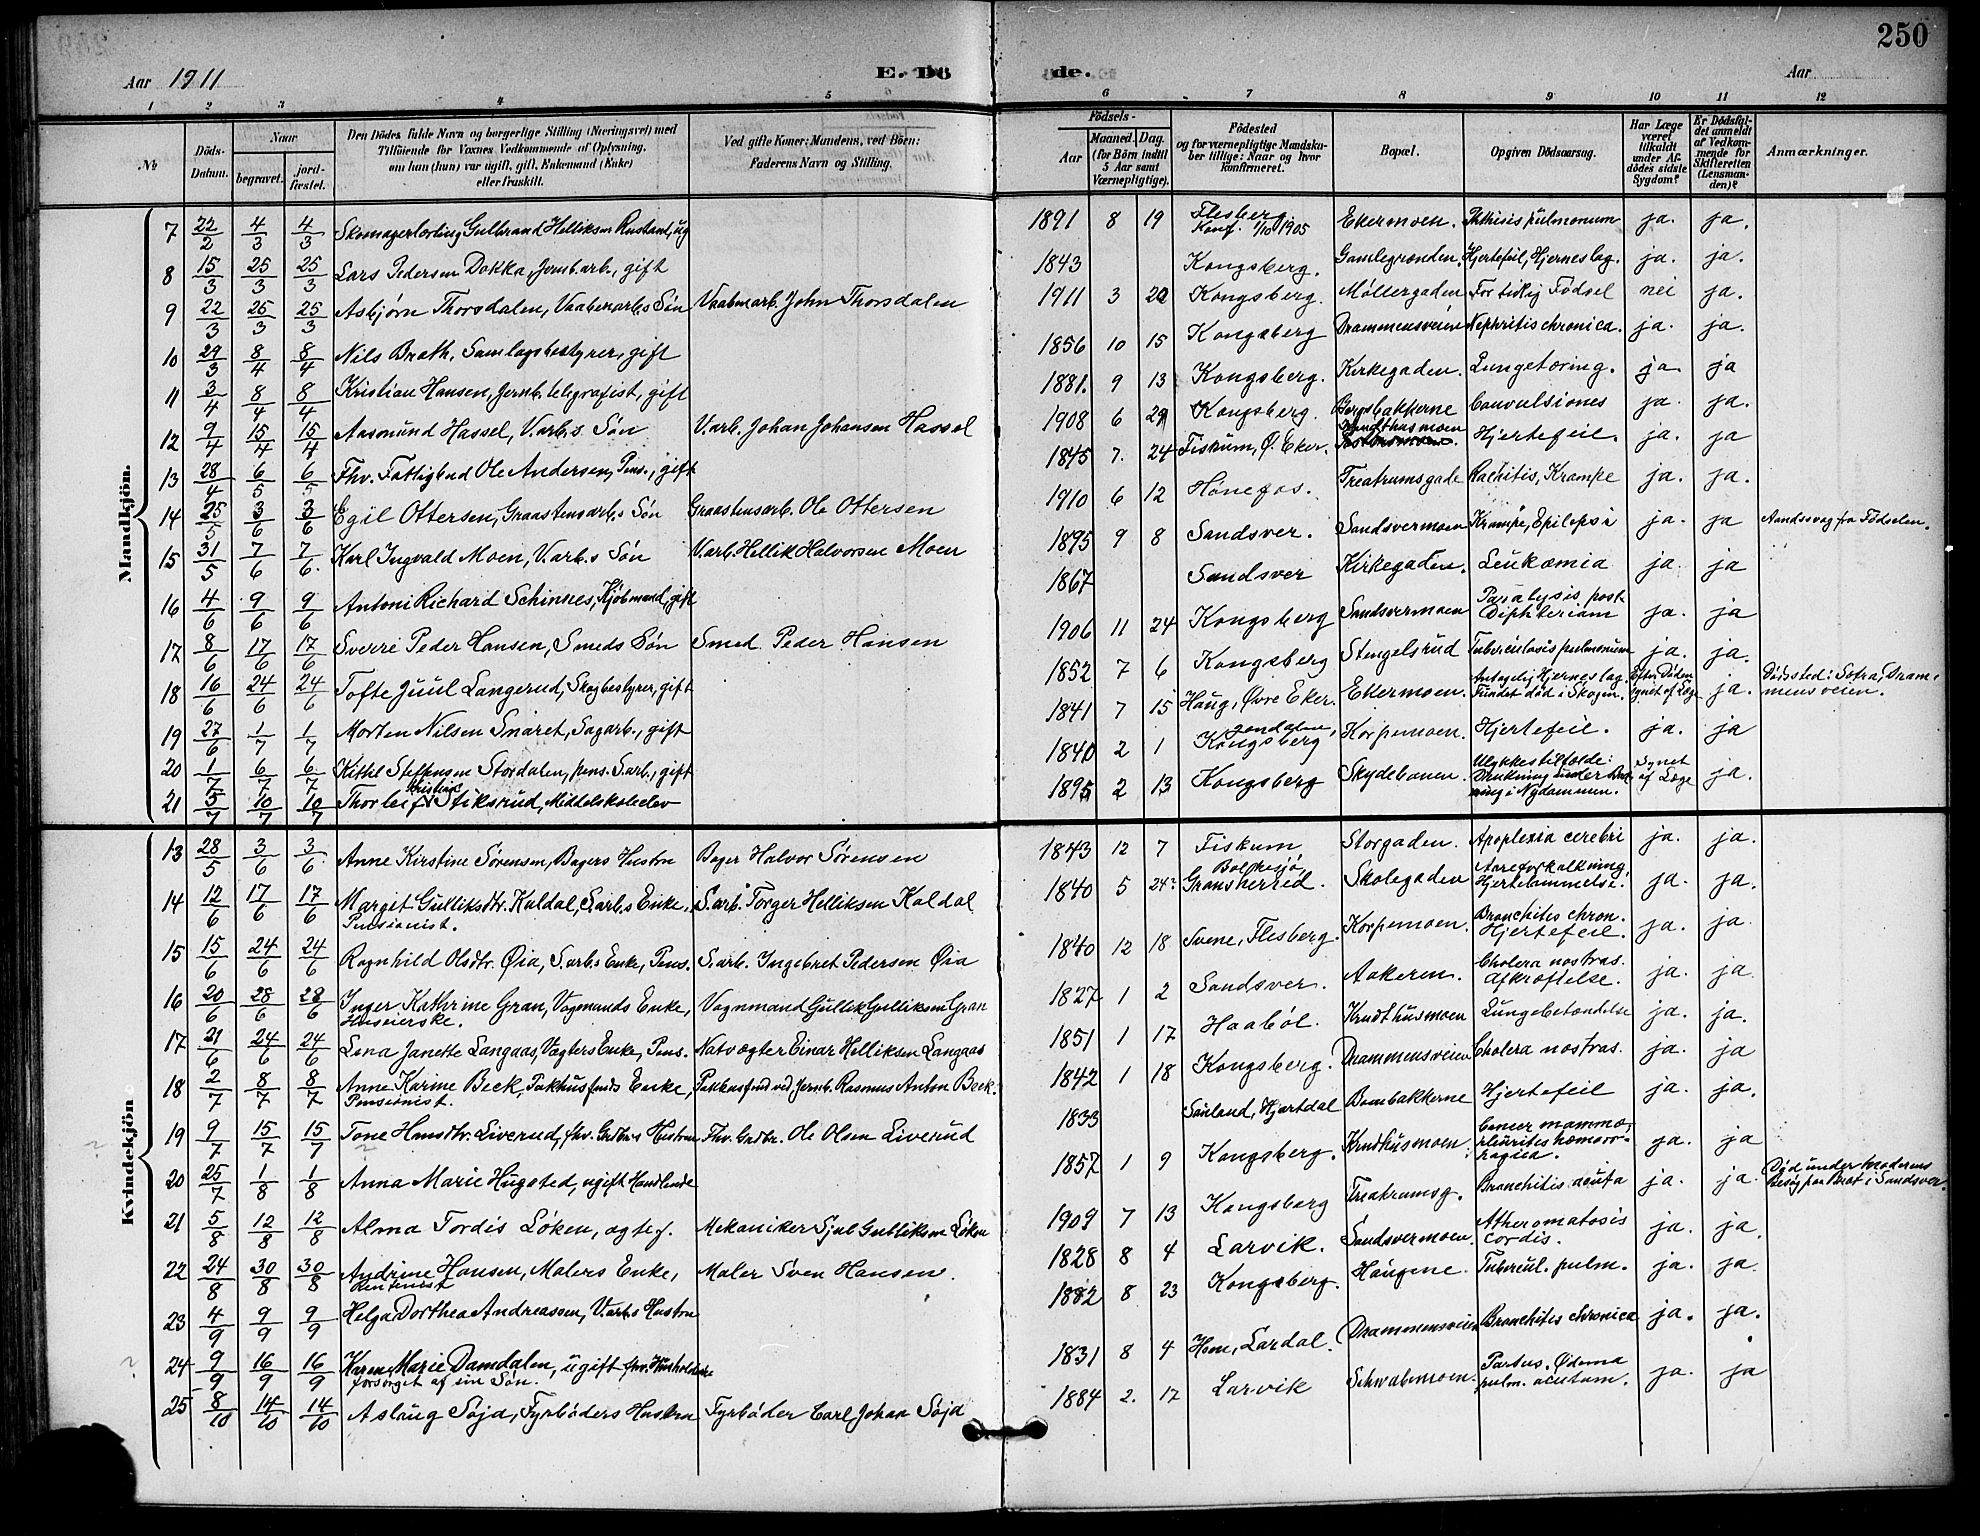 250
Aar 1911 E. Döde. Aar
1 2 3 4 5 6 7 8 9 10 11 12
№ Döds-Datum. Naar begravet. jordfæstet. Den Dödes fulde Navn og borgerlige Stilling (Næringsvei) med Tilföiende for Voxnes Vedkommende af Oplysning, om han (hun) var ugift, gift, Enkemand (Enke) eller fraskilt. Ved gifte Koner: Mandens, ved Börn: Faderens Navn og Stilling. Födsels- Aar Maaned. Dag. (for Börn indtil 5 Aar samt Værnepligtige). Födested og for værnepligtige Mandskaber tillige: Naar og hvor konfirmeret. Bopæl. Opgiven Dödsaarsag. Har Læge været tilkaldt under Afdödes sidste Sygdom? Er Dödsfaldet anmeldt af Vedkommende for Skifteretten (Lensmanden)? Anmærkninger.
Mandkjön.
7 22/2 4/3 4/3 Skomagerlærling Gulbrand Helliksen Rustand, ug 1891 8 19 Flesberg Konf. 1/10 1905 Ekermoen. Phthisis pulmonum ja. ja.
8 15/3 25/3 25/3 Lars Pedersen Dokka, Jernb.arb., gift 1843 Kongsberg. Gamlegrenden. Hjertefeil, Hjerneslag. ja. ja.
9 22/3 25/3 25/3 Asbjørn Thorsdalen, Vaabenarb.s Søn Vaabenarb. John Thorsdalen 1911 3 22 Kongsberg. Møllergaden For tidlig Fødsel nei ja.
10 29/3 8/4 8/4 Nils Brath, Samlagsbestyrer, gift 1856 10 15 Kongsberg Drammensveien Nephritis chronica. ja. ja.
11 3/4 8/4 8/4 Kristian Hansen, Jernb. telegrafist, gift 1881. 9 13 Kongsberg. Kirkegaden. Lungetæring. ja ja
12 9/4 15/4 15/4 Aasmund Hassel, V.arb.s Søn V.arb. Johan Johansen Hassel 1908 6 29 Kongsberg. Bergsbakkerne Convulsiones ja. ja.
13 28/4 6/5 6/5 Fhv. Fattigbud Ole Andersen, Pens., gift 1845 7. 24 Fiskum, Ø. Eker. Krudthusmoen Hjertefeil. ja. ja
14 25/5 3/6 3/6 Egil Ottersen, Graastensarb.s Søn Graastensarb. Ole Ottersen 1910 6 12 Hønefos. Treatrumsgade Rachitis, Krampe ja. ja.
15 31/5 7/6 7/6. Karl Ingvald Moen, V.arb.s Søn V.arb. Hellik Halvorsen Moen 1895 9 8 Sandsver. Sandsvermoen Krampe, Epilepsi ja. ja Aandssvag fra Fødselen.
16 4/6 9/6 9/6 Antoni Richard Schinnes, Kjøbmand, gift 1867 Sandsver Kirkegaden. Leukæmia ja. ja
17 8/6 17/6 17/6 Sverre Peder Hansen, Smeds Søn Smed Peder Hansen 1906 11 24 Kongsberg Sandsvermoen Paralysis post Diphteriam ja. ja
18 16/6 24/6 24/6 Tofte Juul Langerud, Skogbestyrer, gift 1852 7 6 Kongsberg Stengelsrud Tuberculosis pulmonum ja. ja.
19 27/6 1/7 1/7 Morten Nilsen Snaret, Sagarb., gift 1841 7 15 Haug, Øvre Eker. Ekermoen. Antagelig Hjerneslag. Fundet død i Skogen. Efter Døden synet af Læge ja. Dødssted: Sætra, Drammensveien.
20 1/7 6/7 6/7 Kittil Steffensen Stordalen, pens. S.arb., gift 1840 2 1 Jondalen, Kongsberg Korpemoen. Hjertefeil. ja. ja
21 5/7 10/7 10/7 Thorleif Kristian Stiksrud, Middelskoleelev 1895 2 13 Kongsberg Skydebanen. Ulykkestilfælde: Drukning under Badning i Nydammen. Synet af Læge ja.
Kvindekjön
13 28/5 3/6 3/6. Anne Kirstine Sørensen, Bagers Hustru Bager Halvor Sørensen 1843 12 7 Fiskum Storgaden. Apoplexia cerebri ja. ja.
14 12/6 17/6 17/6 Margit Gulliksdtr. Kaldal, S.arb.s Enke, Pensionist. S.arb. Torger Helliksen Kaldal 1840 5 24 Bolkesjø Gransherred. Skolegaden Aareforkalkning, Hjertelammelse. ja. ja.
15 15/6 24/6 24/6 Ragnhild Olsdtr. Øia, S.arb.s Enke, Pens. S.arb. Ingebret Pedersen Øia 1840 12 18 Svene, Flesberg. Korpemoen. Bronchitis chron. Hjertefeil. ja. ja
16 20/6 28/6 28/6 Inger Kathrine Gran, Vognmands Enke, Huseierske. Vognmand Gullik Gulliksen Gran 1827 1 2 Sandsver. Aakeren. Cholera nostras. Afkræftelse. ja. ja
17 21/6 24/6 24/6 Lena Janette Langaas, Vægters Enke, Pens. Natvægter Einar Helliksen Langaas 1851 1 17 Haabøl. Krudthusmoen Lungebetændelse ja. ja.
18 2/7 8/7 8/7 Anne Karine Beck, Pakhusfmds Enke, Pensionist. Pakhusfmd ved Jernb. Rasmus Anton Beck. 1842 1 18 Kongsberg. Drammensveien Cholera nostras. ja. ja
19 9/7 15/7 15/7 Tone Hansdtr. Liverud, fhv. Grdbr.s Hustru Fhv. Grdbr. Ole Olsen Liverud 1833 Sauland, Hjartdal Bombakkerne Hjertefeil ja. ja.
20 25/7 1/8 1/8 Anna Marie Hugsted, ugift Handlende 1857 1 9 Kongsberg. Krudhusmoen. Cancer mammæ, pleurites hæmorrhagica. ja. ja
21 5/8 12/8 12/8 Alma Tordis Løken, ægtef. Mekaniker Sjul Gulliksen Løken 1909 7 13 Kongsberg Treatrumsg. Bronchitis acuta ja. ja. Død under Moderens Besøg paa Bræt i Sandsver.
22 24/8 30/8 30/8 Andrine Hansen, Malers Enke, Rentenist Maler Sven Hansen. 1828 8 4 Larvik. Sandsvermoen. Atheromatosis cordis. ja. ja.
23 4/9 9/9 9/9 Helga Dorthea Andreassen, V.arb.s Hustru 1882 8 23 Kongsberg. Haugene. Tubercul. pulm. ja. ja.
24 9/9 16/9 16/9 Karen Marie Damdalen, ugift fhv. Husholderske forsørget af sin Søn. 1831 8 4 Hem, Lardal. Drammensveien Bronchitis chronica ja. ja.
25 8/10 14/10 14/10 Aslaug Søjd, Fyrbøders Hustru Fyrbøder Carl Johan Søjd 1884 2. 17 Larvik Schwabemoen. Partus. Ødema pulm. acutum. ja. ja